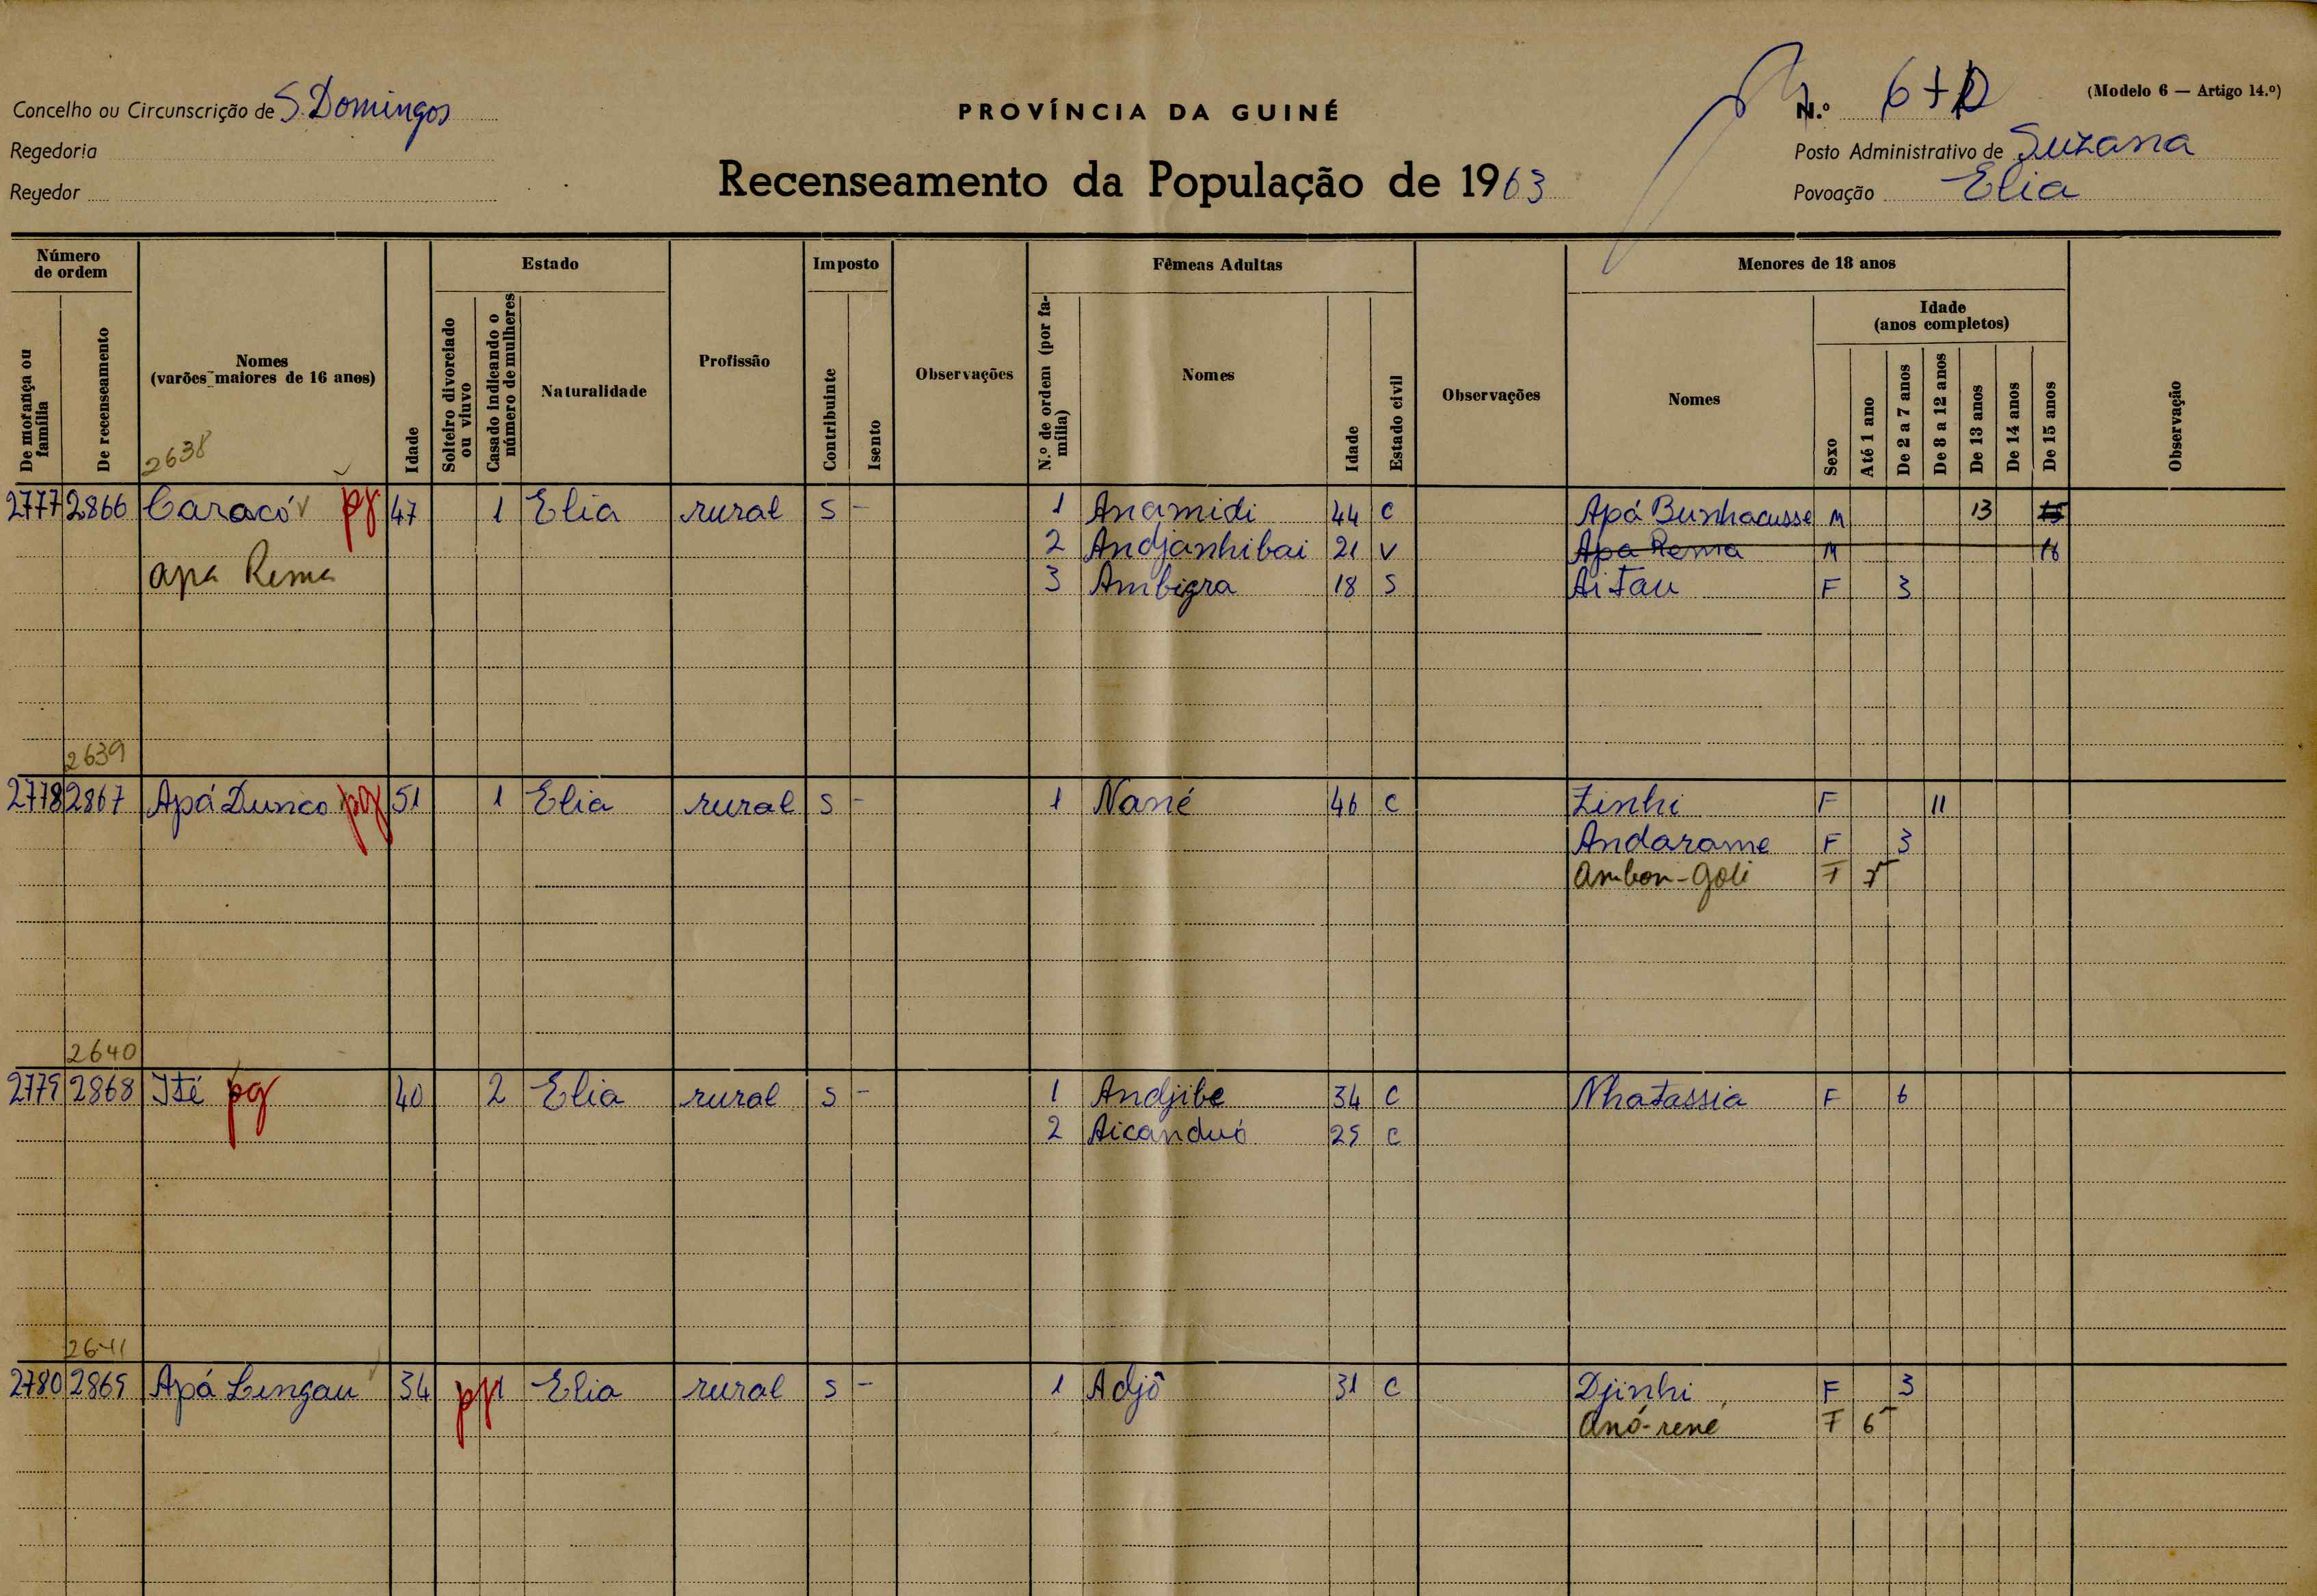 Concelho ou Circunscrição de S. Domingos
PROVÍNCIA DA GUINÉ
N.º
(Modelo 6 — Artigo 14.º)
Regedoria
Posto Administrativo de Suzana
Regedor
Recenseamento da População de 1963
Povoação Elia
Número de ordem
Estado
Imposto
Fêmeas Adultas
Menores de 18 anos
De morança ou família
De recenseamento
Nomes (varões maiores de 16 anos)
Idade
Solteiro divorciado ou viuvo
Casado indicando o número de mulheres
Naturalidade
Profissão
Contribuinte
Isento
Observações
N.º de ordem (por família)
Nomes
Idade
Estado civil
Observações
Nomes
Sexo
Idade (anos completos)
Até 1 ano
De 2 a 7 anos
De 8 a 12 anos
De 13 anos
De 14 anos
De 15 anos
Observação
2638
2777 2866 Caracó pg 47 1 Elia rural S - 1 Anamidi 44 C Apá Bunhacusse M 13 15
2 Andjanhibai 21 V Apa Rema M 16
apa Rema 3 Ambigra 18 S Aitau F 3
2639
2778 2867 Apá Dunco pg 51 1 Elia rural S - 1 Nané 46 C Zinhi F 11
Andarame F 3
Ambon-Goli F
2640
2779 2868 Ité pg 40 2 Elia rural S - 1 Andjibe 34 C Nhatassia F 6
2 Aicanduó 25 C
2641
2780 2869 Apá Lengau 34 pg 1 Elia rural S - 1 Adjô 31 C Djinhi F 3
Anó-rené F 6